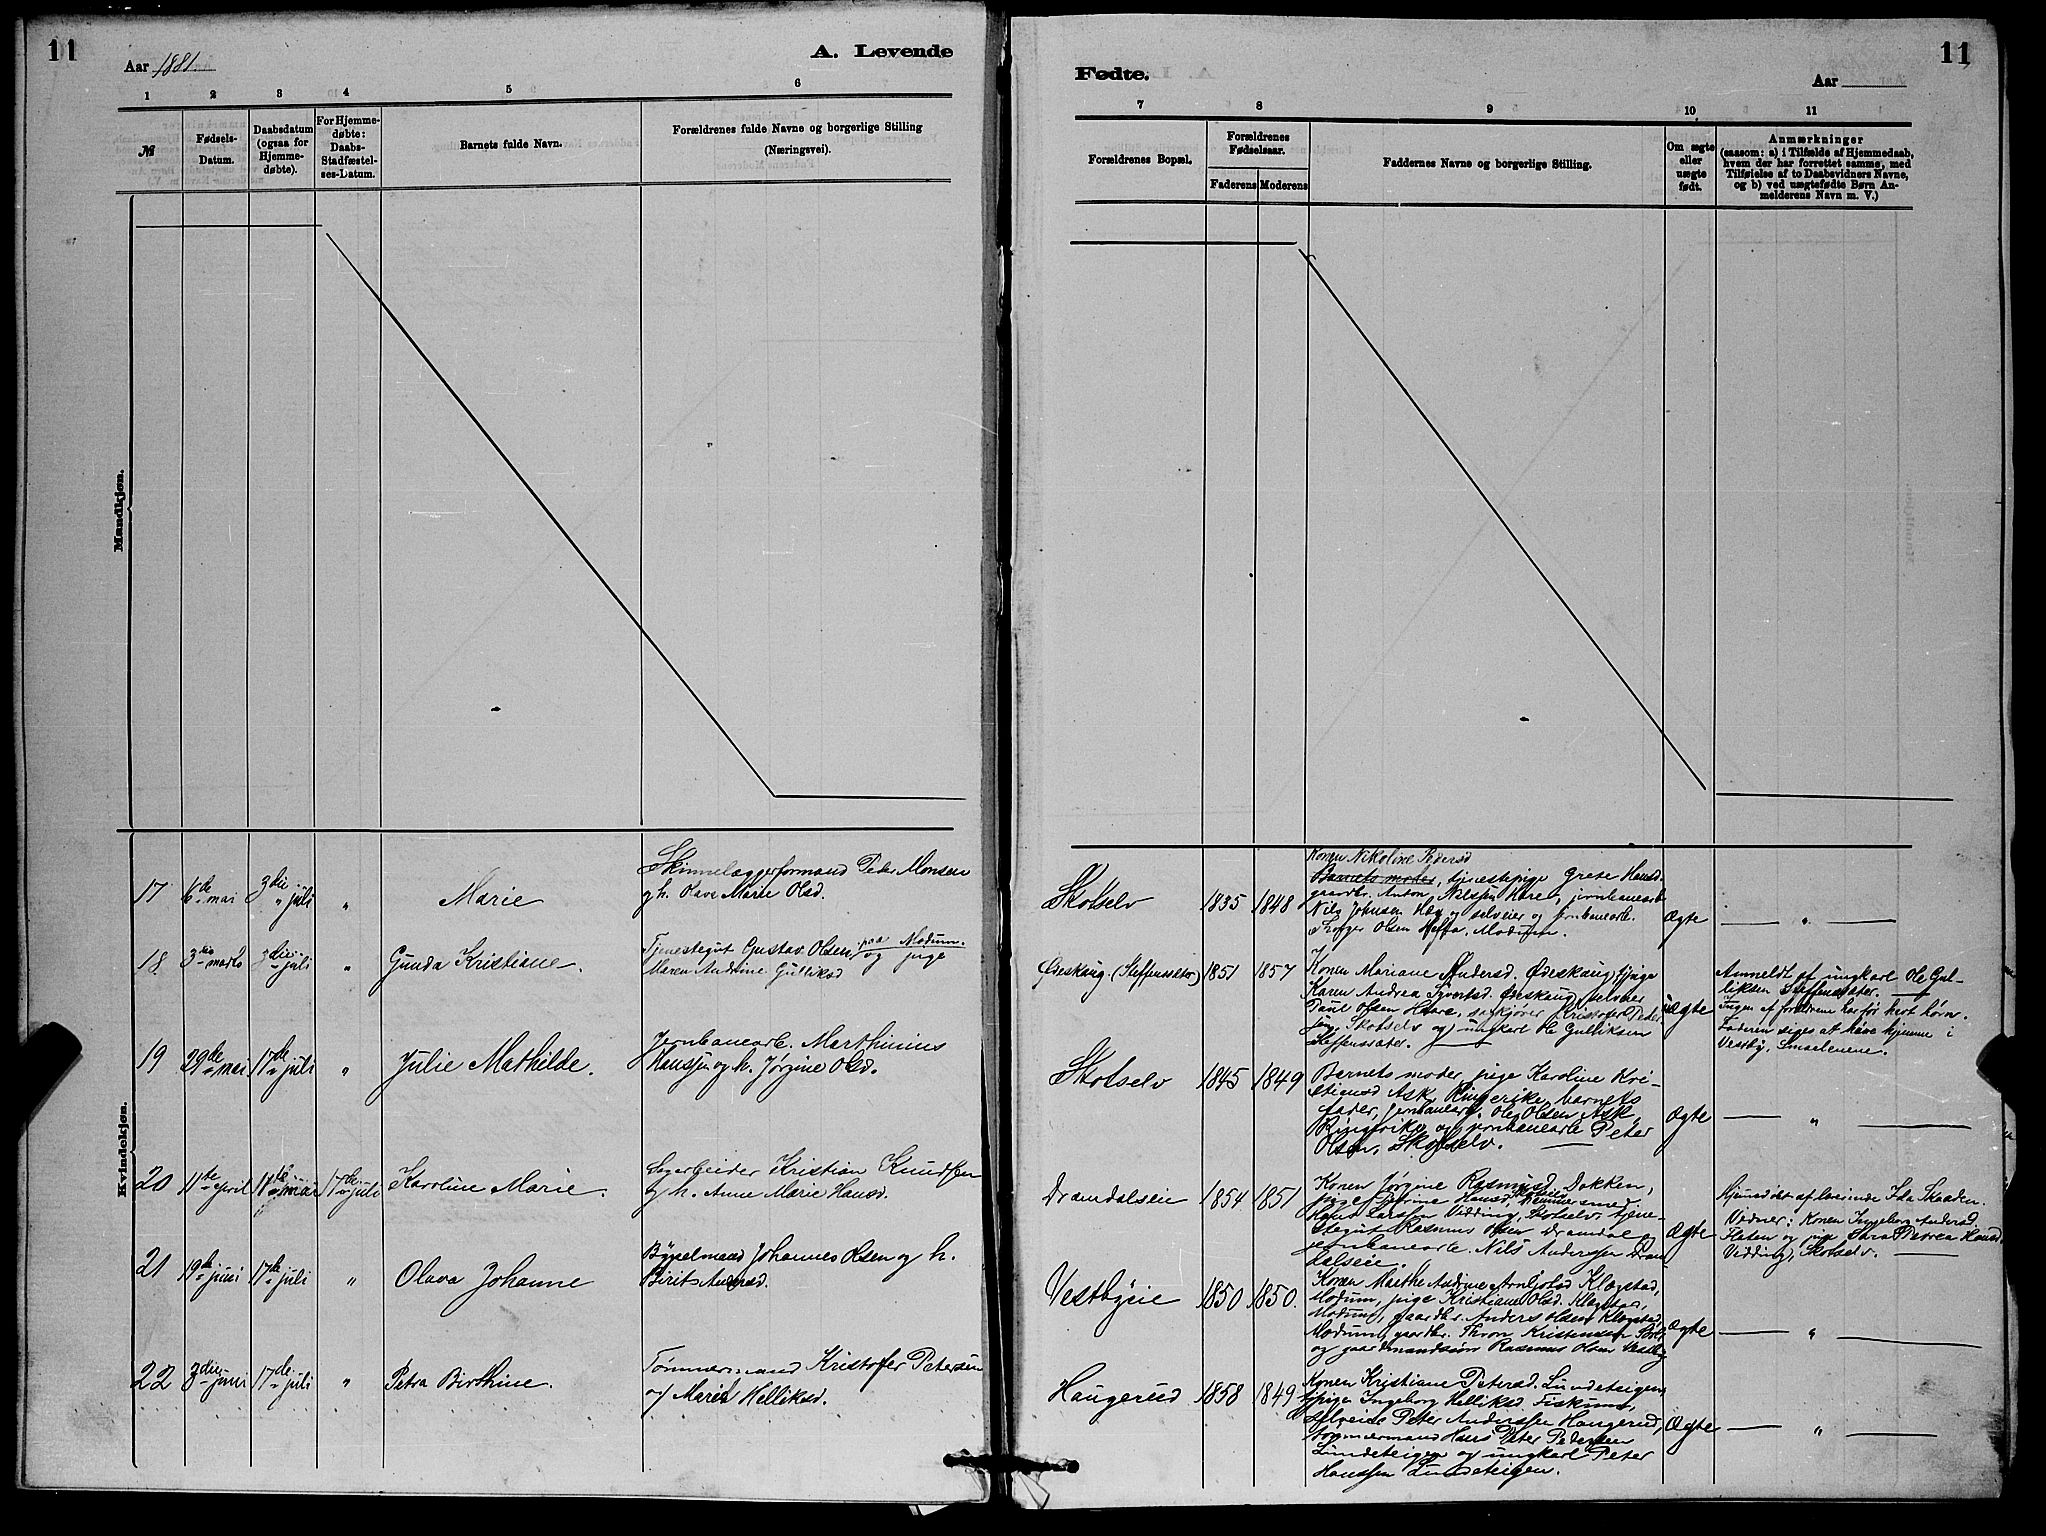 11
Aar 1881.
A. Levende
1 2 3 4 5 6
№
Fødsels-
Datum.
Daabsdatum
(ogsaa for
Hjemme-
døbte).
For Hjemme-
døbte:
Daabs-
Stadfæstel-
ses-Datum.
Barnets fulde Navn.
Forældrenes fulde Navne og borgerlige Stilling
(Næringsvei).
Mandkjøn.
Kvindekjøn.
17 6te mai 3die juli " Marie
Skinnelæggerformand Peter Monsen
og h. Olave Marie Olsd.
18 3die marts 3die juli " Gunda Kristiane.
Tjenestegut Gustav Olsen, paa Modum. og pige
Maren Andrine Gulliksd
19 29de mai 17de juli " Julie Mathilde.
Jernbanearb. Marthinius
Hanssen og h. Jørgine Olsd.
20 11te april 11te mai 17de juli Karoline Marie.
Sagarbeider Kristian Knudsen
og h. Anne Marie Hansd.
21 19de juni 17de juli " Olava Johanne
Bygselmand Johannes Olsen og h.
Birit Andersd.
22 3die juni 17de juli " Petra Birthine.
Tømmermand Kristofer Petersen
og Maren Helliksd.
11
Fødte.
Aar
7 8 9 10 11
Forældrenes Bopæl.
Forældrenes
Fødselsaar.
Faderens Moderens
Faddernes Navne og borgerlige Stilling.
Om ægte
eller
uægte
født.
Anmærkninger
(saasom: a) i Tilfælde af Hjemmedaab,
hvem der har forrettet samme, med
Tilføielse af to Daabsvidners Navne,
og b) ved uægtefødte Børn An-
melderens Navn m. V.)
Skotselv 1835 1848
Konen Nikoline Pedersd
Barnets moder, tjenestepige Grete Hansd.
gaardbr. Anton Nilssen Hære, jernbanearb
Nils Johnsen Hæg og selveier og jernbanearb.
Thorger Olsen Modum.
Ægte "
Ødeskaug (Steffensseter) 1851 1857
Konen Mariane Andersd. Ødeskaug, pige
Karen Andrea Syvertsd. Ødeskaug, selveier
Paul Olsen Haare, Kristofer Peder-
sen, Skotselv og ungkarl Ole Gulliksen
Steffensseter.
uægte
Anmeldt af ungkarl Ole Gul-
liksen Steffenseter.
Ingen af forældrene har før havt børn.
Faderen siges at have hjemme i
Vestby, Smaalenene.
Skotselv 1845 1849
Barnets moder, pige Karoline Kri-
stiansd Ask, Ringerike, barnets
fader, jernbanearb. Ole Olsen Ask
Ringerike og jernbanearb Peter
Olsen, Skotselv.
Ægte "
Dramdalseie 1854 1851
Konen Jørgine Rasmusd. Dokken,
pige Hansd, Skotselv
Hans Larssen Vidding, Skotselv, tjene-
stegut Rasmus Olsen Dramdal og
jernbanearb. Nils Anderssen Dram-
dalseie.
Ægte
Hjemmedøbt af lærerinde Ida Skaaden.
Vidner: Konen Ingeborg Andersd.
Flaten og pige Petrea Hansd
Vidding, Skotselv.
Vestbyeie 1850 1850.
Konen Marthe Andrine Arntsd Kløgstad,
Modum, pige Kristiane Olsd. Kløgstad,
Modum, gaardbr. Anders Olsen Kløgstad,
Modum, gaardbr. Thron Kristensen
og gaardmandssøn Rasmus Olsen Vestby
Ægte "
Haugerud 1858 1849
Konen Kristiane Petersd. Lundeteigen,
pigen Ingeborg Helliksd Fiskum,
selveier Peter Anderssen Haugerud,
tømmermand Hans Peter Pedersen
Lundeteigen og ungkarl Peter
Hanssen Lundeteigen.
Ægte "